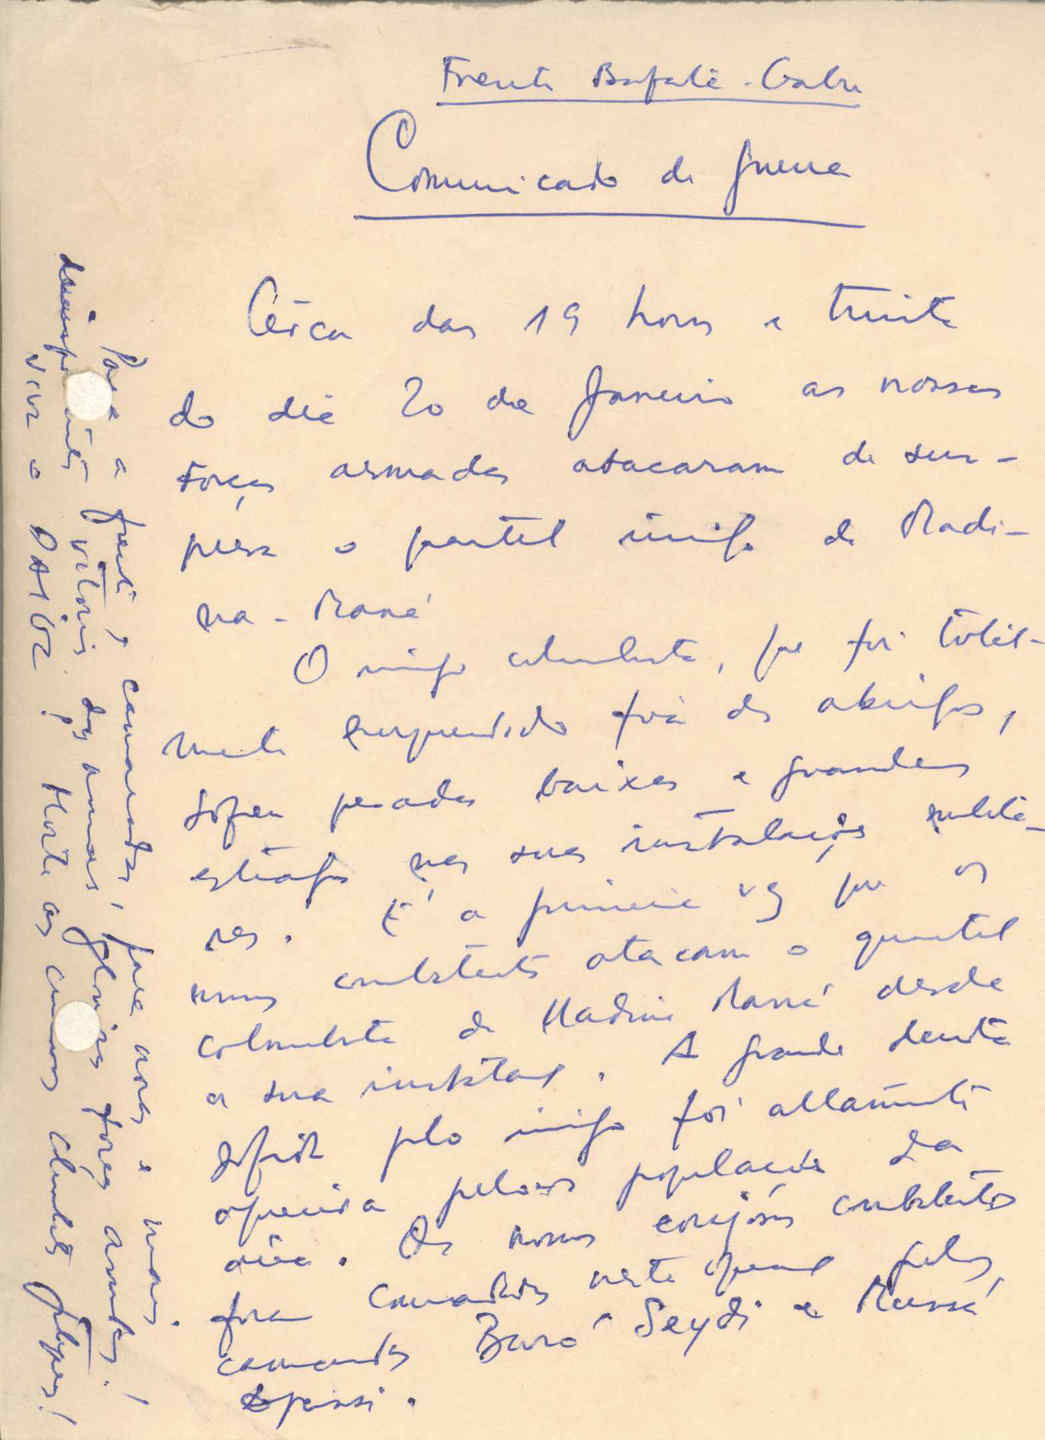 Frente Bafatá-Gabu
Comunicado de guerra
Cêrca das 19 horas e trinta
do dia 20 de Janeiro as nossas
forças armadas atacaram de sur-
presa o quartel inimigo de Madi-
na-Mané
O inimigo colonialista, que foi total-
mente surpreendido fora dos abrigos,
sofreu pesadas baixas e grandes
estragos nas suas instalações milita-
res. É a primeira vez que os
nossos combatentes atacam o quartel
colonialista de Madina Mané desde
a sua instalação. A grande derrota
sofrida pelo inimigo foi altamente
apreciada pelas populações da
área. Os nossos corajosos combatentes
foram comandados nesta operação pelos
camaradas Buró Seydi e Mussá
Para a frente, camaradas, para novas e mais
vitórias das nossas gloriosas forças armadas!
Viva o PAIGC! Morte aos criminosos colonialistas portugueses!